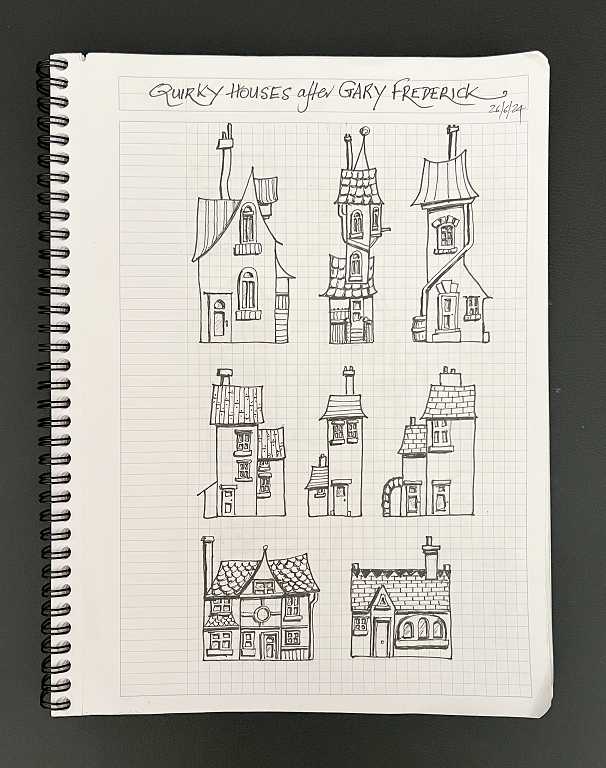 QUIRKY HOUSES after GARY FREDERICK
26/6/24